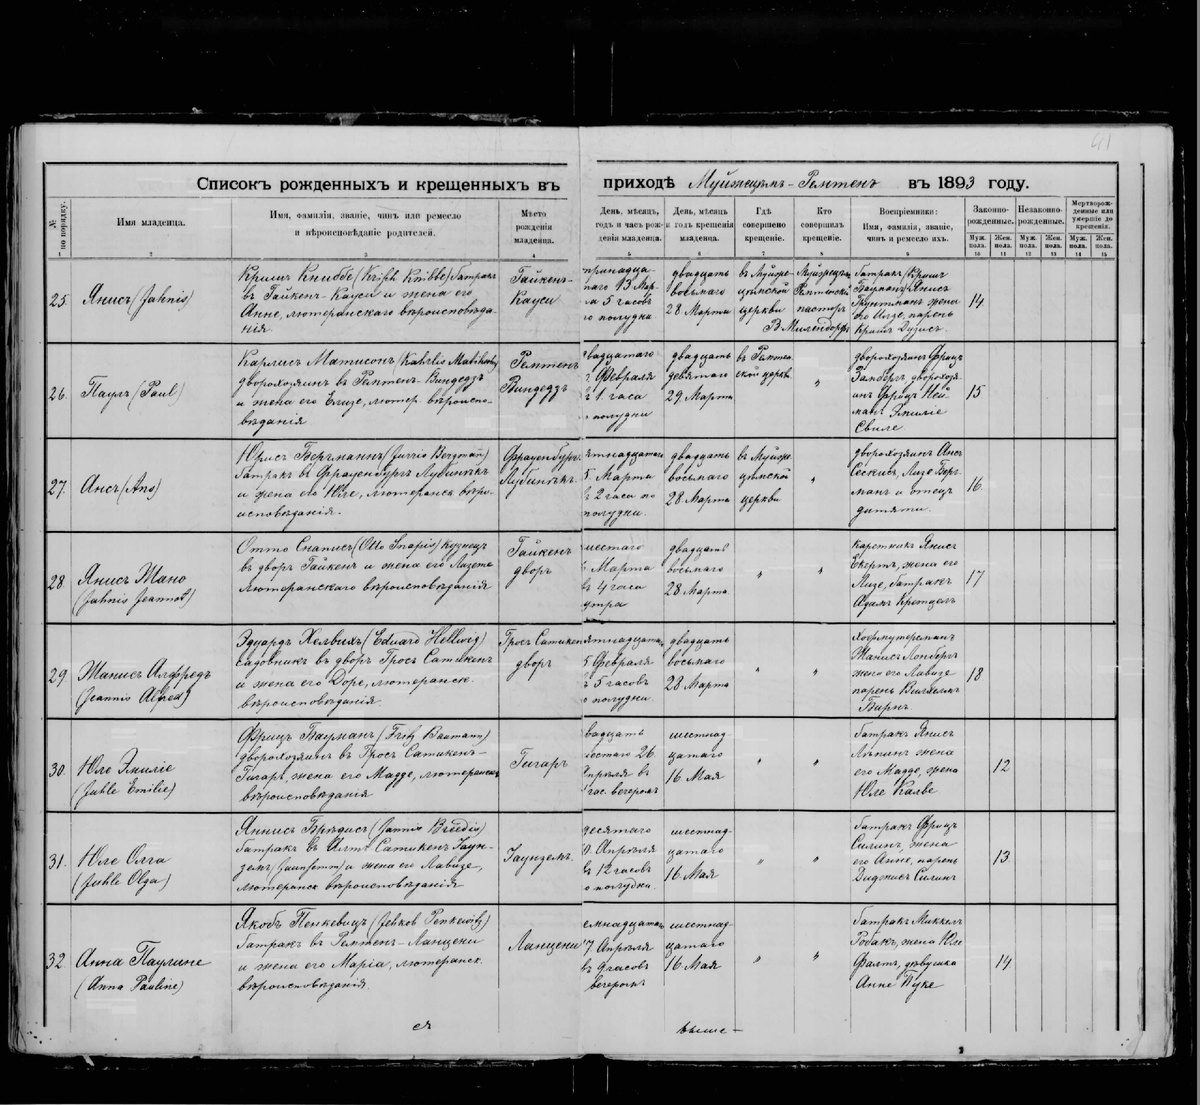 41
Списокъ рожденныхъ и крещенныхъ въ приходѣ Муйжецемъ-Ремтенъ въ 1893 году.
№ по порядку.
Имя младенца.
Имя, фамилія, званіе, чинъ или ремесло
и вѣроисповѣданіе родителей.
Мѣсто
рожденія
младенца.
День, мѣсяцъ,
годъ и часъ рож-
денія младенца.
День, мѣсяцъ
и годъ крещенія
младенца.
Гдѣ
совершено
крещеніе.
Кто
совершилъ
крещеніе.
Воспріемники:
Имя, фамилія, званіе,
чинъ и ремесло ихъ.
Законно-
рожденные.
Незаконно-
рожденные.
Мертворож-
денные или
умершіе до
крещенія.
Муж. пола. Жен. пола. Муж. пола. Жен. пола. Муж. пола. Жен. пола.
1 2 3 4 5 6 7 8 9 10 11 12 13 14 15
25.
Янисъ (Jahnis)
Кришъ Книббе (Krish Knibbe) батракъ
въ Гайкенъ-Кауси и жена его
Анне, лютеранскаго вѣроисповѣда-
нія.
Гайкенъ-
Кауси
тринадца-
таго 13 Мар.
5 часовъ
полудни.
двадцать
восьмаго
28 Марта
въ Муйже-
цѣмской
церкви
Ремтенскій
пасторъ
В. МиленДорфъ
батракъ Кришъ
Янисъ
жена
его Лизе, парень
Кришъ
14
26.
Паулъ (Paul)
Карлисъ Матисонъ (Kahrlis Matihsohn)
дворохозяинъ въ Ремтенъ-Виндедзъ
и жена его Елизе, лютер. вѣроиспо-
вѣданія
Ремтенъ
Виндедзъ
двадцатаго
Февраля
1 часа
полудни
двадцать
девятаго
29 Марта
въ Ремтен-
ской церкви
"
дворохозяинъ Фрицъ
дворохозя-
инъ Фрицъ Ней-
манъ Эмиліе
Свиле.
15
27.
Ансъ (Ans)
Юррисъ Бергманнъ (Jurris Bergmann)
батракъ въ Фрауенбургъ Лубинѣкъ
и жена его Юле, лютеранск. вѣро-
исповѣданія.
Фрауенбургъ
Лубинѣкъ.
5 Марта
въ 2 часа по
полудни.
двадцать
восьмаго
28 Марта
въ Муйже-
цѣмской
церкви
"
дворохозяинъ Ансъ
Сескисъ, Лизе Берг-
манъ и отецъ
дитяти.
16
28.
Янисъ Жано
(Jahnis Jeannot)
Отто Снаписъ (Otto Snapis) кузнецъ
въ дворѣ Гайкенъ и жена его Лизета
лютеранскаго вѣроисповѣданія
Гайкенъ
дворъ
шестаго
Марта
въ 4 часа
утра
двадцать
восьмаго
28 Марта
"
"
каретникъ Янисъ
Екертъ, жена его
Лизе, батракъ
Адамъ Кретцелъ
17
29
Жанисъ Алфредъ
(Jeannis Alfred)
Эдуардъ Хелвихъ (Eduard Hellwig)
садовникъ въ дворѣ Гросъ Сатикенъ
и жена его Доре, лютеранск.
вѣроисповѣданія.
Гросъ Сатикенъ
дворъ
5 Февраля
5 часовъ
полудни.
двадцать
восьмаго
28 Марта
"
"
Жанисъ Лонбергъ
жена его Лавизе
парень Вилхелмъ
Бирнъ
18
30.
Юле Эмиліе
(Juhle Emilie)
Фрицъ Бауманъ (Fritz Baumann)
дворохозяинъ въ Гросъ Сатикенъ-
Гигаръ, жена его Мадде, лютеранск.
вѣроисповѣданія
Гигаръ
двадцать
шестаго 26
Апрѣля въ
час. вечеромъ
шестнад-
цатаго
16 Мая
"
"
батракъ Янисъ
жена
его Мадде, жена
Юле Калве
12
31.
Юле Олга
(Juhle Olga)
Яннисъ Брѣдисъ (Jannis Breedis)
батракъ въ Алтъ Сатикенъ Яун-
земъ (Jaunsemm) и жена его Лавизе,
лютеранск. вѣроисповѣданія
Яунземъ.
десятаго
10 Апрѣля
въ 12 часовъ
полудни.
шестнад-
цатаго
16 Мая
"
"
батракъ Фрицъ
Силинъ, жена
его Анне, парень
Силинъ
13
32
Анна Паулине
(Anna Pauline)
Якобъ Пенкевицъ (Jehkob Penkewitz)
батракъ въ Ремтенъ-Ланцени
и жена его Маріа, лютеранск.
вѣроисповѣданія.
Ланцени
семнадцатаго
17 Апрѣля
въ 9 часовъ
вечеромъ
шестнад-
цатаго
16 Мая
"
"
батракъ Миккелъ
Робакъ, жена Юле
дѣвушка
Анне Пуке
14